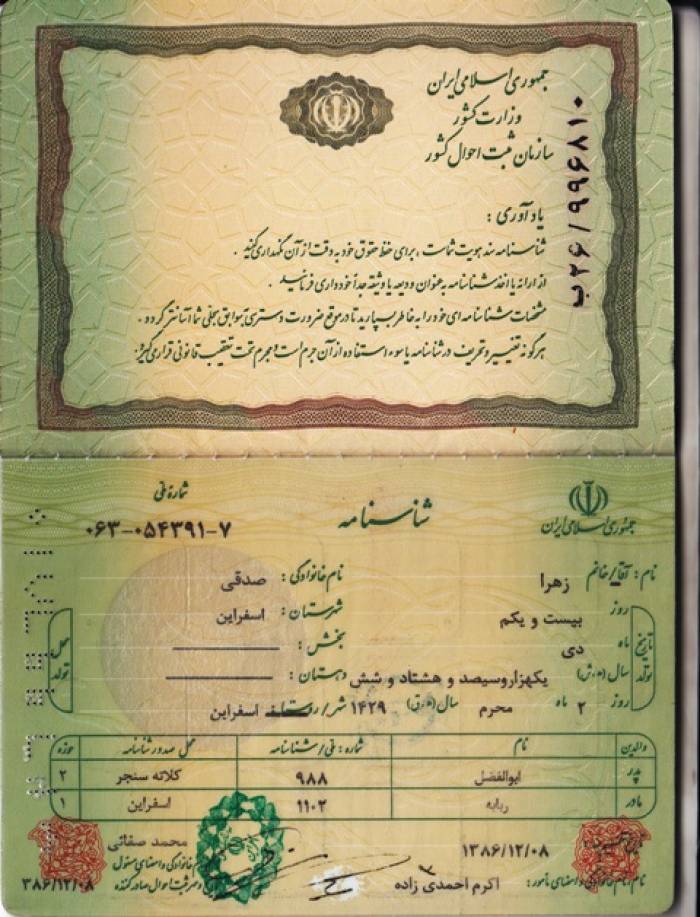 جمهوری اسلامی ایران
وزارت کشور
سازمان ثبت احوال کشور
ب۲۶/۹۹۶۸۱۰
یادآوری :
شناسنامه سند هویت شماست ، برای حفظ حقوق خود به دقت از آن نگهداری کنید .
از ارائه یا اخذ شناسنامه به عنوان ودیعه یا وثیقه جداً خودداری فرمائید .
مشخصات شناسنامه ای خود را به خاطر بسپارید تا در مواقع ضرورت دسترسی به سوابق سجلی شما آسانتر گردد .
هرگونه تغییر و تحریف در شناسنامه یا سوء استفاده از آن جرم است و مجرم تحت تعقیب قانونی قرار می گیرد .
جمهوری اسلامی ایران
شناسنامه
شماره ملی
۰۶۳-۰۵۴۳۹۱-۷
نام : آقا/خانم زهرا نام خانوادگی : صدقی
تاریخ تولد
روز بیست و یکم شهرستان : اسفراین
ماه دی بخش :
سال (ه.ش) یکهزاروسیصد و هشتاد و شش دهستان :
روز ۲ ماه محرم سال (ه.ق) ۱۴۲۹ شهر/روستا اسفراین
محل تولد
والدین نام شماره : ملی/شناسنامه محل صدور شناسنامه حوزه
پدر ابوالفضل ۹۸۸ کلاته سنجر ۲
مادر ربابه ۱۱۰۲ اسفراین ۱
۱۳۸۶/۱۲/۰۸
محمد صفائی
نام خانوادگی و امضای مأمور : اکرم احمدی زاده
نام خانوادگی و امضای مسئول
و مهر ثبت احوال صادرکننده
۳۸۶/۱۲/۰۸